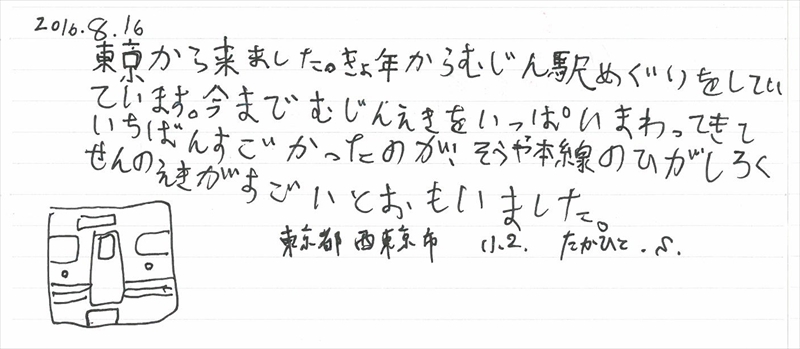 2016.8.16
東京から来ました。きょ年からむじん駅めぐりをしてい
ています。今までむじんえきをいっぱいまわってきて
いちばんすごかったのが、そうや本線のひがしろく
せんのえきがすごいとおもいました。
東京都西東京市 小2. たかひと.S.